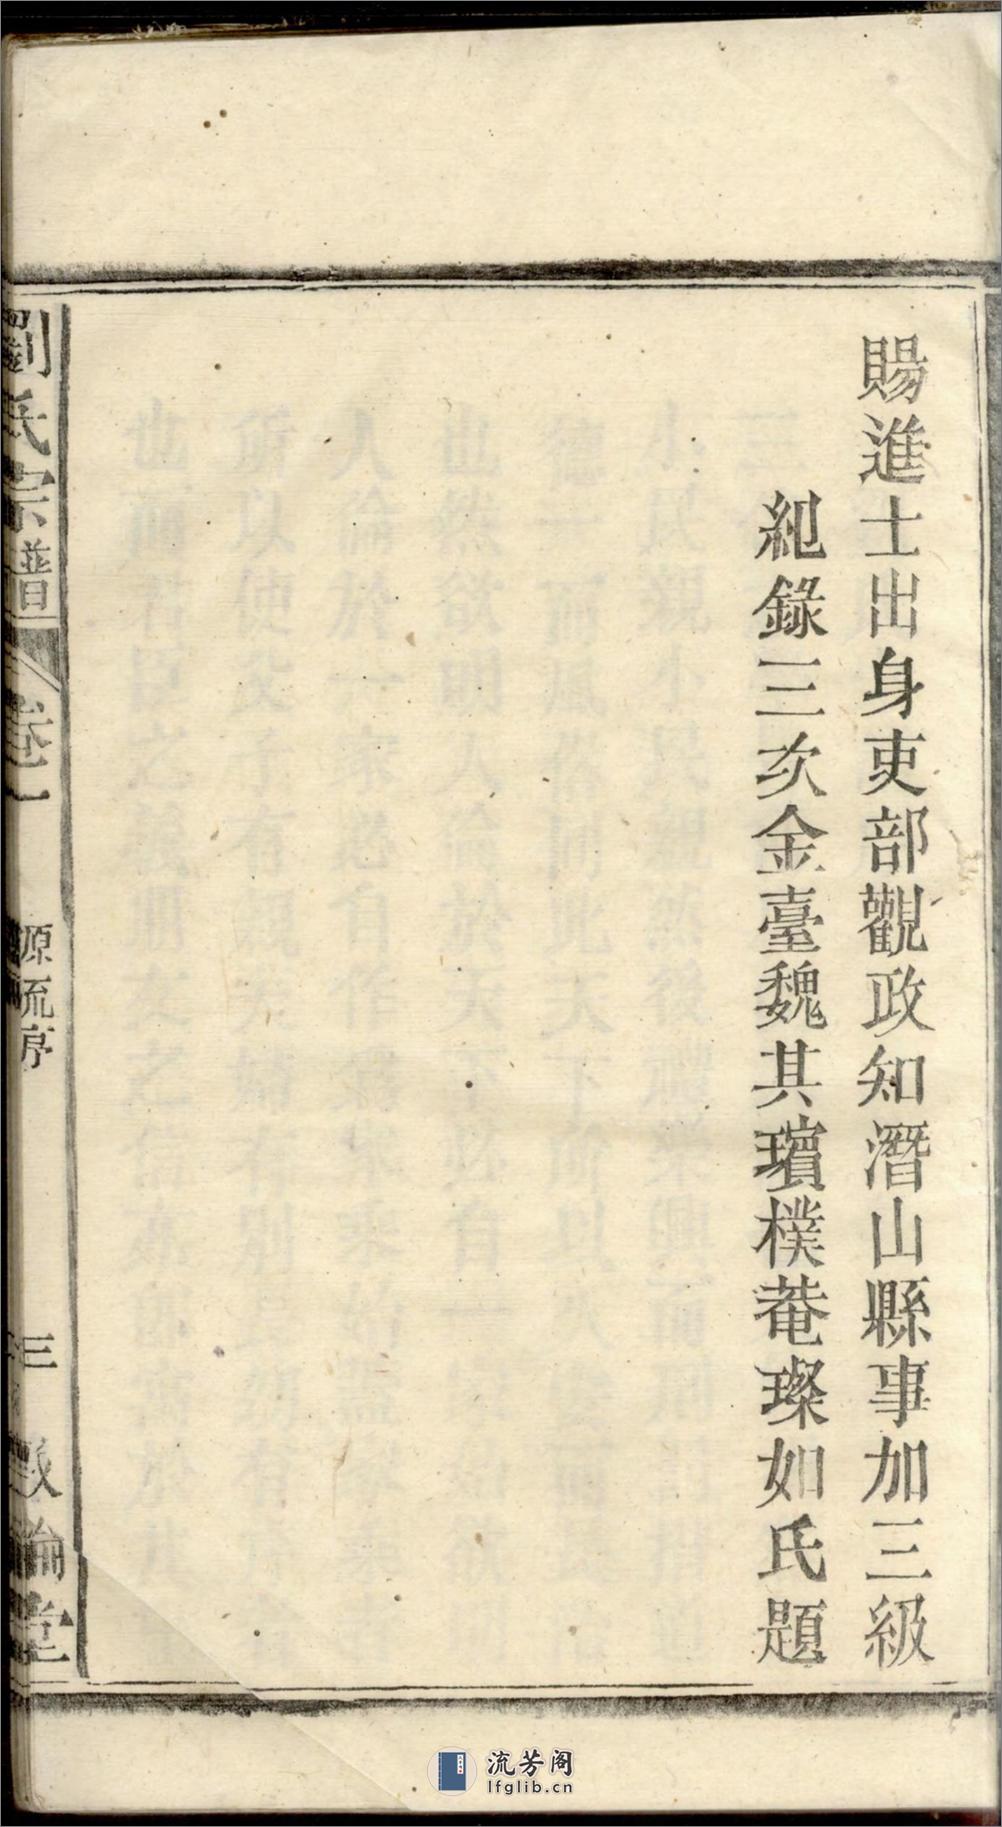 賜進士出身吏部觀政知潛山縣事加三級
紀錄三次金臺魏其璸樸菴璨如氏題
劉氏宗譜
卷一
源流序
三
敘倫堂
流芳阁
lfglib.cn